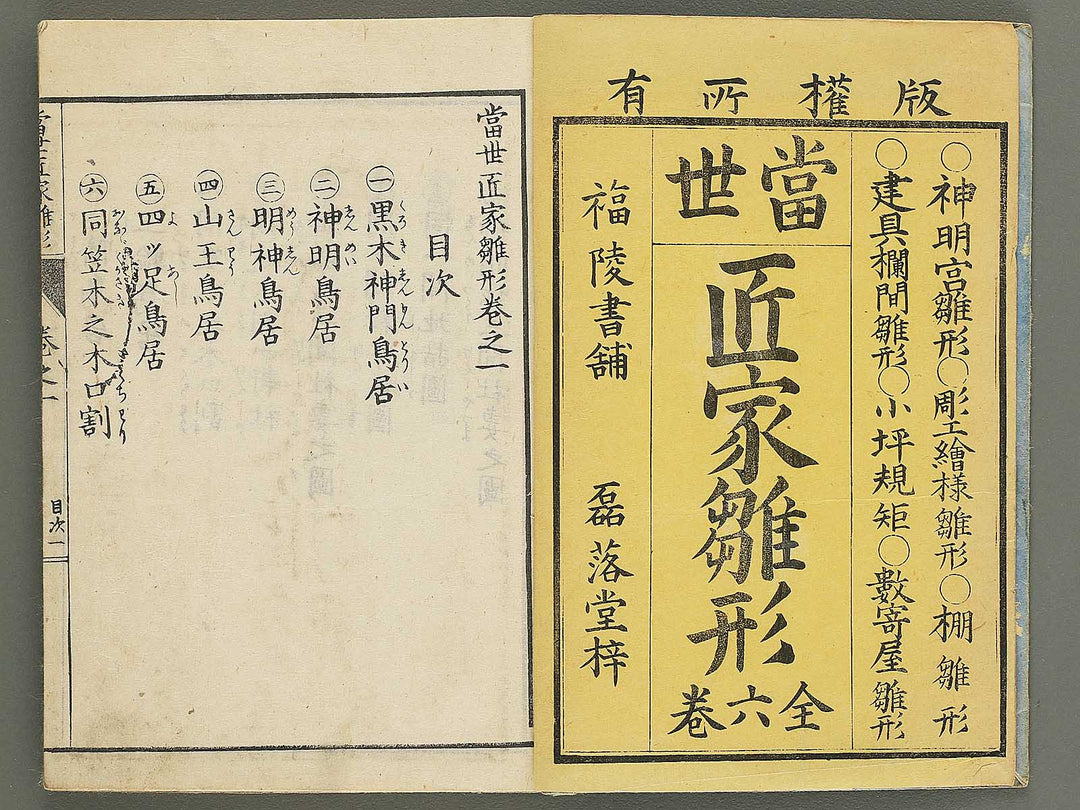 版權所有
○神明宮雛形○彫工繪様雛形○棚雛形
○建具欄間雛形○小坪規矩○數寄屋雛形
當世
匠家雛形
全六卷
福陵書舗 磊落堂梓
當世匠家雛形卷之一
目次
㊀黒木神門鳥居
㊁神明鳥居
㊂明神鳥居
㊃山王鳥居
㊄四ッ足鳥居
㊅同笠木之木口割
當世匠家雛形
卷之一
目次一